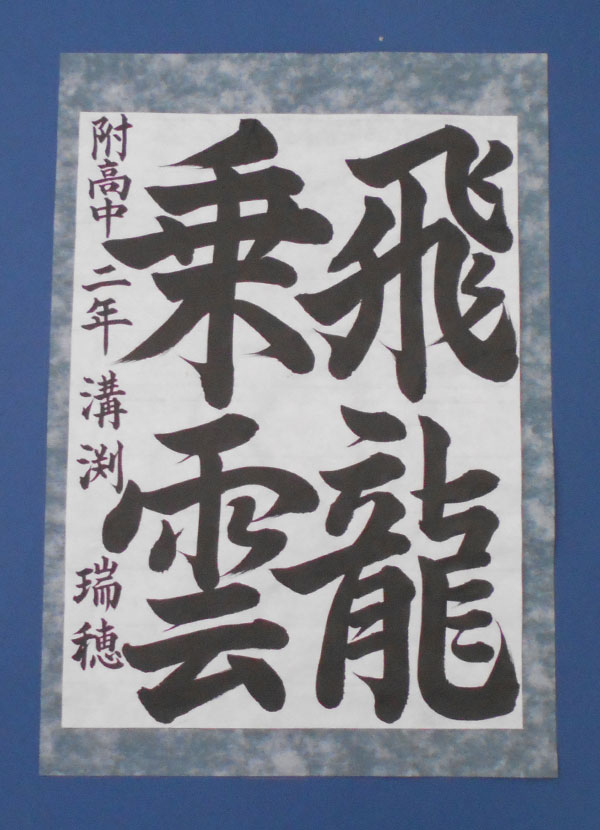 飛龍
乗雲
附高中 二年 溝渕 瑞穂